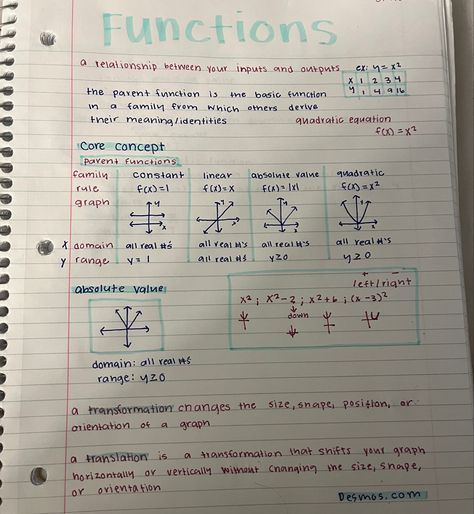 Functions
a relationship between your inputs and outputs
ex: y = x²
x 1 2 3 4
y 1 4 9 16
the parent function is the basic function
in a family from which others derive
their meaning/identities
quadratic equation
f(x) = x²
core concept
parent functions
family constant linear absolute value quadratic
rule f(x)=1 f(x)=x f(x)=|x| f(x)=x²
graph
x domain all real #'s all real #'s all real #'s all real #'s
y range y = 1 all real #'s y≥0 y≥0
absolute value
+ −
left/right
x² ; x²-2 ; x²+6 ; (x-3)²
down
domain: all real #s
range: y≥0
a transformation changes the size, shape, position, or
orientation of a graph
a translation is a transformation that shifts your graph
horizontally or vertically without changing the size, shape,
or orientation
Desmos.com